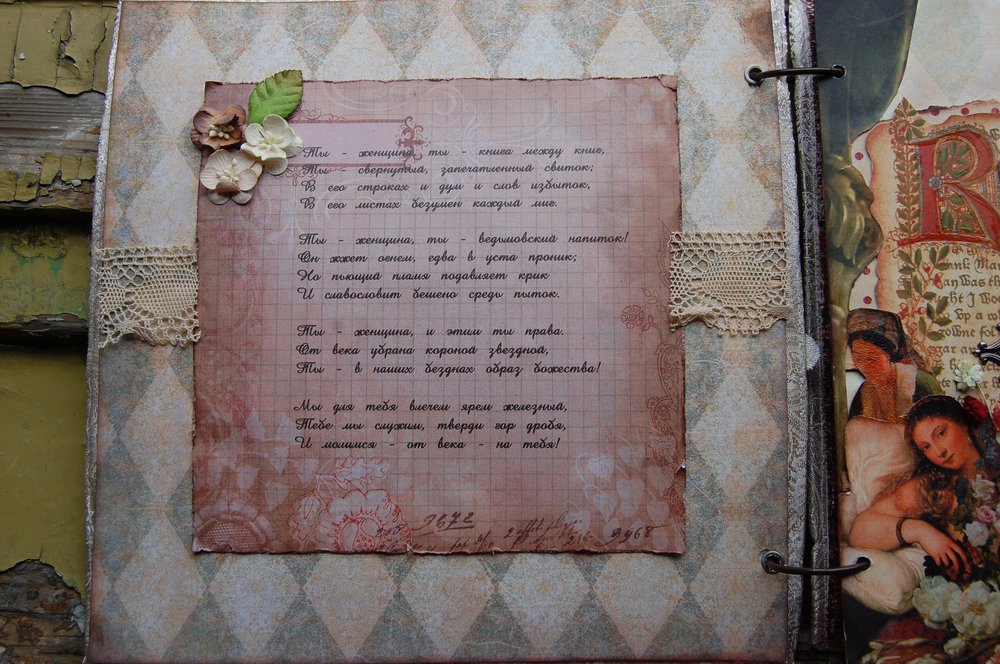 Ты - женщина, ты - книга между книг,
Ты - свернутый, запечатленный свиток;
В его строках и дум и слов избыток,
В его листах безумен каждый миг.
Ты - женщина, ты - ведьмовский напиток!
Он жжет огнем, едва в уста проник;
Но пьющий пламя подавляет крик
И славословит бешено средь пыток.
Ты - женщина, и этим ты права.
От века убрана короной звездной,
Ты - в наших безднах образ божества!
Мы для тебя влечем ярем железный,
Тебе мы служим, тверди гор дробя,
И молимся - от века - на тебя!
9672
R